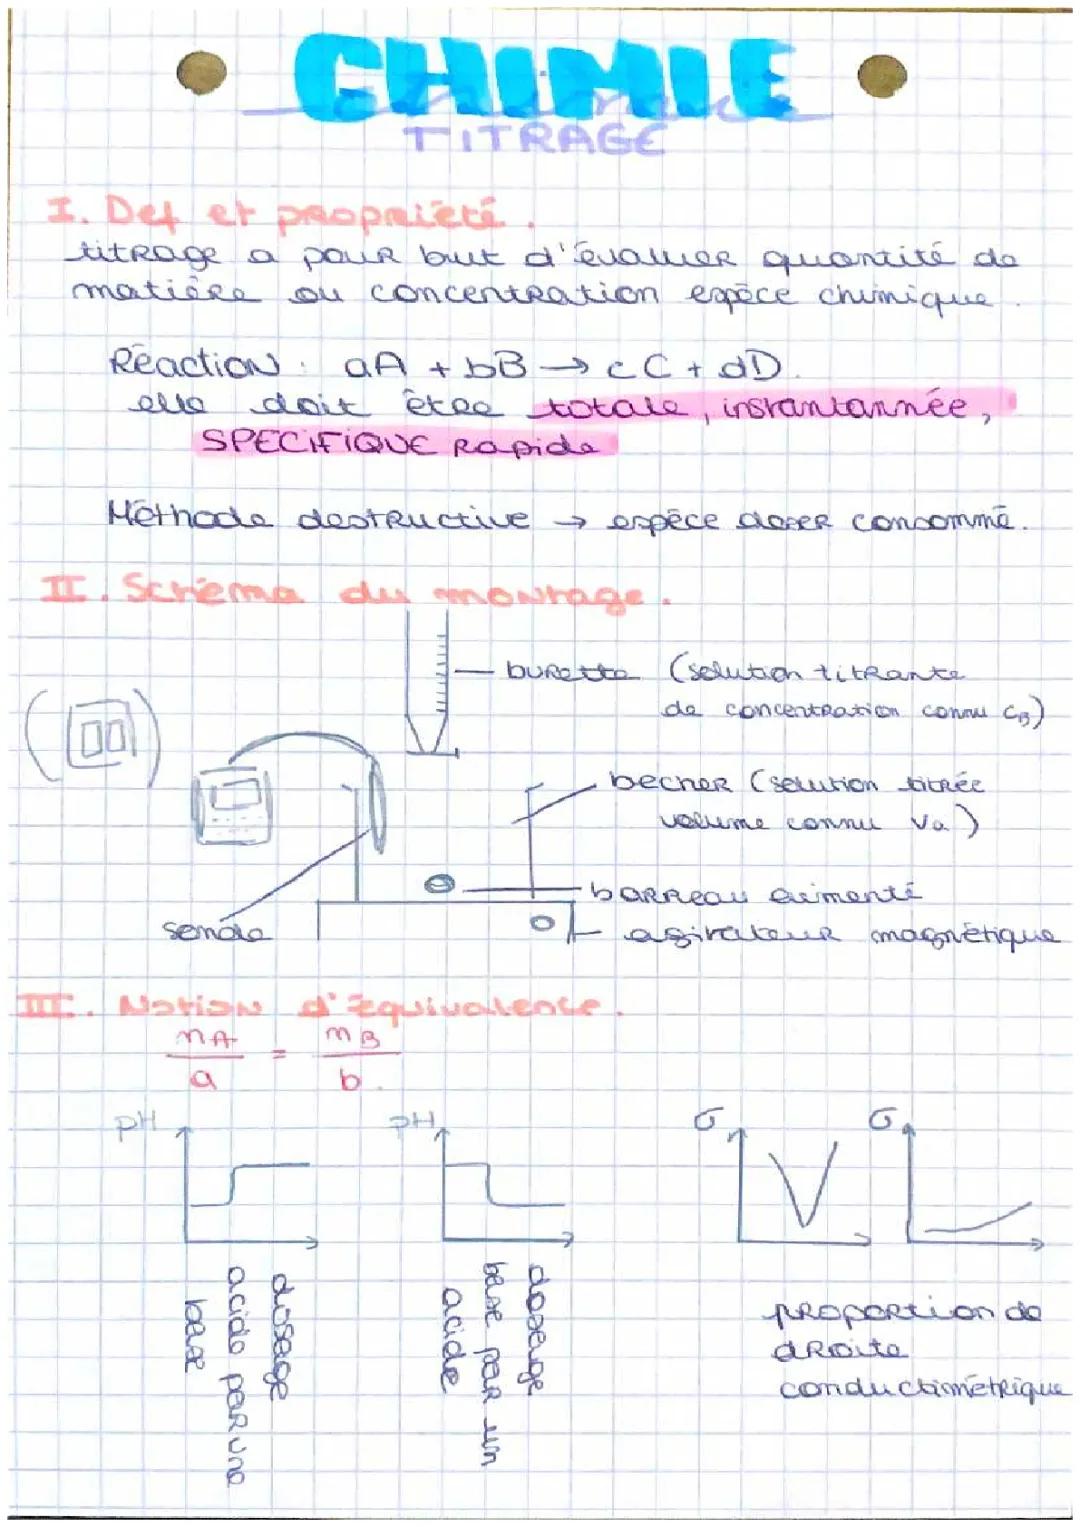 CHIMIE
TITRAGE
I. Def et propriété.
titrage a pour but d'évaluer quantité de
matière ou concentration espèce chimique.
Réaction : aA + bB → cC + dD.
elle doit être totale, instantannée,
SPECIFIQUE Rapide
Méthode destructive → espèce doser consommé.
II. Schéma du montage.
burette (solution titrante
de concentration connu CB)
becher (solution titrée
volume connu Va)
barreau aimanté
sonde
agitateur magnétique
III. Notion d'équivalence.
nA/a = nB/b.
pH
pH
σ
σ
dosage
acide par une
base
dosage
base par un
acide
proportion de
droite
conductimétrique